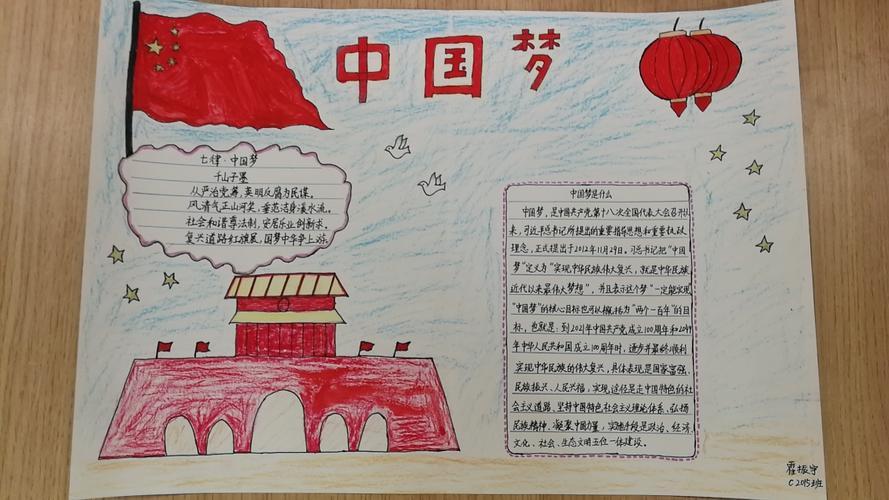 中国梦
七律·中国梦
千山子墨
从严治党纲，英明反腐为民谋。
风清气正山河笑，垂范洁身溪水流。
社会和谐尊法制，安居乐业创新求。
复兴道路红旗展，国梦中华争上游
中国梦是什么
中国梦，是中国共产党第十八次全国代表大会召开以
来，习近平总书记所提出的重要指导思想和重要执政
理念，正式提出于2012年11月29日。习总书记把“中国
梦”定义为“实现中华民族伟大复兴，就是中华民族
近代以来最伟大梦想”，并且表示这个梦“一定能实现
“中国梦”的核心目标也可以概括为“两个一百年”的目
标，也就是：到2021年中国共产党成立100周年和2049
年中华人民共和国成立100周年时，逐步并最终顺利
实现中华民族的伟大复兴，具体表现是国家富强、
民族振兴、人民兴福，实现途径是走中国特色的社
会主义道路、坚持中国特色社会主义理论体系、弘扬
民族精神、凝聚中国力量，实施手段是政治、经济、
文化、社会、生态文明五位一体建设。
霍振宇
C2015班